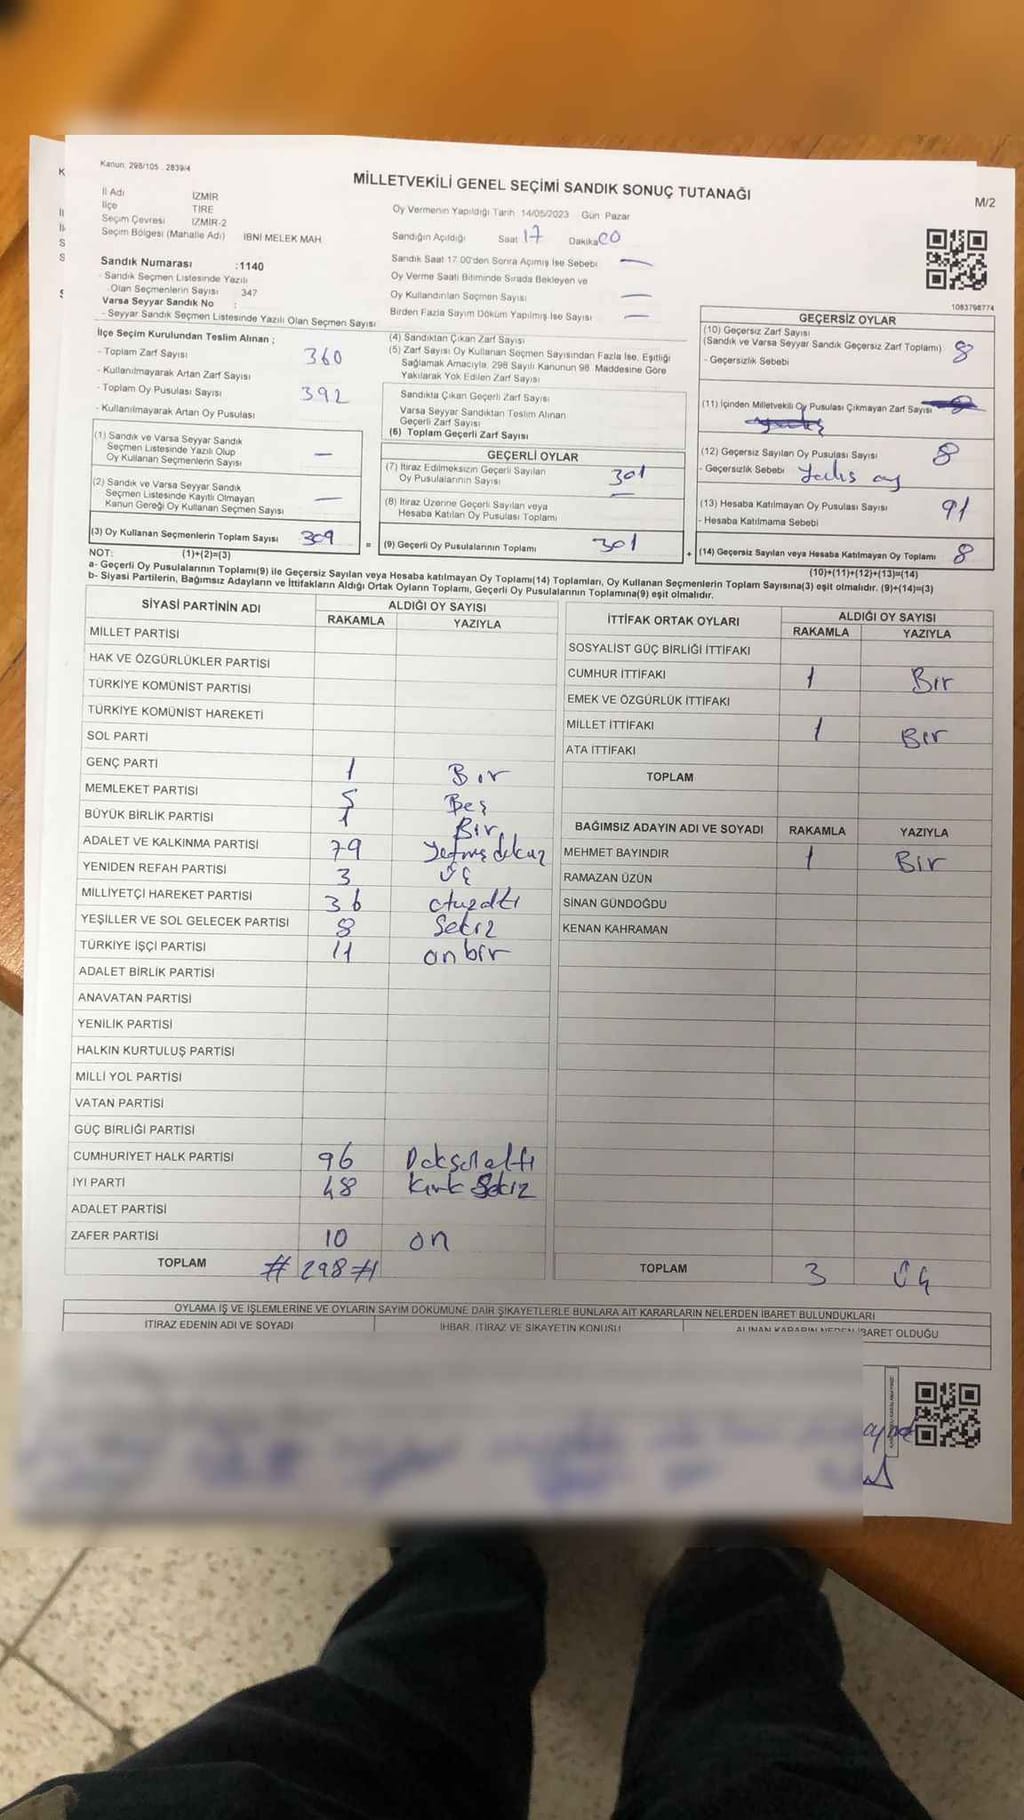 Kanun: 298/105 . 2839/4
MİLLETVEKİLİ GENEL SEÇİMİ SANDIK SONUÇ TUTANAĞI
M/2
İl Adı İZMİR
İlçe TİRE
Seçim Çevresi İZMİR-2
Seçim Bölgesi (Mahalle Adı) İBNİ MELEK MAH
Oy Vermenin Yapıldığı Tarih 14/05/2023 Gün Pazar
Sandığın Açıldığı Saat 17 Dakika 00
Sandık Saat 17.00'den Sonra Açımış İse Sebebi —
Oy Verme Saati Bitiminde Sırada Bekleyen ve
Oy Kullandırılan Seçmen Sayısı —
Birden Fazla Sayım Döküm Yapılmış İse Sayısı —
1083798774
Sandık Numarası :1140
- Sandık Seçmen Listesinde Yazılı
Olan Seçmenlerin Sayısı 347
Varsa Seyyar Sandık No :
- Seyyar Sandık Seçmen Listesinde Yazılı Olan Seçmen Sayısı
İlçe Seçim Kurulundan Teslim Alınan ;
- Toplam Zarf Sayısı 360
- Kullanılmayarak Artan Zarf Sayısı
- Toplam Oy Pusulası Sayısı 392
- Kullanılmayarak Artan Oy Pusulası
(1) Sandık ve Varsa Seyyar Sandık
Seçmen Listesinde Yazılı Olup
Oy Kullanan Seçmenlerin Sayısı —
(2) Sandık ve Varsa Seyyar Sandık
Seçmen Listesinde Kayıtlı Olmayan
Kanun Gereği Oy Kullanan Seçmen Sayısı —
(3) Oy Kullanan Seçmenlerin Toplam Sayısı 309
(4) Sandıktan Çıkan Zarf Sayısı
(5) Zarf Sayısı Oy Kullanan Seçmen Sayısından Fazla İse, Eşitliği
Sağlamak Amacıyla, 298 Sayılı Kanunun 98. Maddesine Göre
Yakılarak Yok Edilen Zarf Sayısı
Sandıkta Çıkan Geçerli Zarf Sayısı
Varsa Seyyar Sandıktan Teslim Alınan
Geçerli Zarf Sayısı
(6) Toplam Geçerli Zarf Sayısı
GEÇERLİ OYLAR
(7) İtiraz Edilmeksizin Geçerli Sayılan
Oy Pusulalarının Sayısı 301
(8) İtiraz Üzerine Geçerli Sayılan veya
Hesaba Katılan Oy Pusulası Toplamı
= (9) Geçerli Oy Pusulalarının Toplamı 301
GEÇERSİZ OYLAR
(10) Geçersiz Zarf Sayısı
(Sandık ve Varsa Seyyar Sandık Geçersiz Zarf Toplamı) 8
- Geçersizlik Sebebi
(11) İçinden Milletvekili Oy Pusulası Çıkmayan Zarf Sayısı
(12) Geçersiz Sayılan Oy Pusulası Sayısı 8
- Geçersizlik Sebebi Yanlış oy
(13) Hesaba Katılmayan Oy Pusulası Sayısı 91
- Hesaba Katılmama Sebebi
+ (14) Geçersiz Sayılan veya Hesaba Katılmayan Oy Toplamı 8
NOT: (1)+(2)=(3)
(10)+(11)+(12)+(13)=(14)
a- Geçerli Oy Pusulalarının Toplamı(9) ile Geçersiz Sayılan veya Hesaba katılmayan Oy Toplamı(14) Toplamları, Oy Kullanan Seçmenlerin Toplam Sayısına(3) eşit olmalıdır. (9)+(14)=(3)
b- Siyasi Partilerin, Bağımsız Adayların ve İttifakların Aldığı Ortak Oyların Toplamı, Geçerli Oy Pusulalarının Toplamına(9) eşit olmalıdır.
SİYASİ PARTİNİN ADI ALDIĞI OY SAYISI
RAKAMLA YAZIYLA
MİLLET PARTİSİ
HAK VE ÖZGÜRLÜKLER PARTİSİ
TÜRKİYE KOMÜNİST PARTİSİ
TÜRKİYE KOMÜNİST HAREKETİ
SOL PARTİ
GENÇ PARTİ 1 Bir
MEMLEKET PARTİSİ 5 Beş
BÜYÜK BİRLİK PARTİSİ 1 Bir
ADALET VE KALKINMA PARTİSİ 79 Yetmiş dokuz
YENİDEN REFAH PARTİSİ 3 üç
MİLLİYETÇİ HAREKET PARTİSİ 36 otuzaltı
YEŞİLLER VE SOL GELECEK PARTİSİ 8 Sekiz
TÜRKİYE İŞÇİ PARTİSİ 11 on bir
ADALET BİRLİK PARTİSİ
ANAVATAN PARTİSİ
YENİLİK PARTİSİ
HALKIN KURTULUŞ PARTİSİ
MİLLİ YOL PARTİSİ
VATAN PARTİSİ
GÜÇ BİRLİĞİ PARTİSİ
CUMHURİYET HALK PARTİSİ 96 Doksan altı
İYİ PARTİ 48 Kırk Sekiz
ADALET PARTİSİ
ZAFER PARTİSİ 10 on
TOPLAM # 298 #
İTTİFAK ORTAK OYLARI ALDIĞI OY SAYISI
RAKAMLA YAZIYLA
SOSYALİST GÜÇ BİRLİĞİ İTTİFAKI
CUMHUR İTTİFAKI 1 Bir
EMEK VE ÖZGÜRLÜK İTTİFAKI
MİLLET İTTİFAKI 1 Bir
ATA İTTİFAKI
TOPLAM
BAĞIMSIZ ADAYIN ADI VE SOYADI RAKAMLA YAZIYLA
MEHMET BAYINDIR 1 Bir
RAMAZAN ÜZÜN
SİNAN GÜNDOĞDU
KENAN KAHRAMAN
TOPLAM 3 üç
OYLAMA İŞ VE İŞLEMLERİNE VE OYLARIN SAYIM DÖKÜMÜNE DAİR ŞİKAYETLERLE BUNLARA AİT KARARLARIN NELERDEN İBARET BULUNDUKLARI
İTİRAZ EDENİN ADI VE SOYADI İHBAR, İTİRAZ VE ŞİKAYETİN KONUSU ALINAN KARARIN NEDEN İBARET OLDUĞU